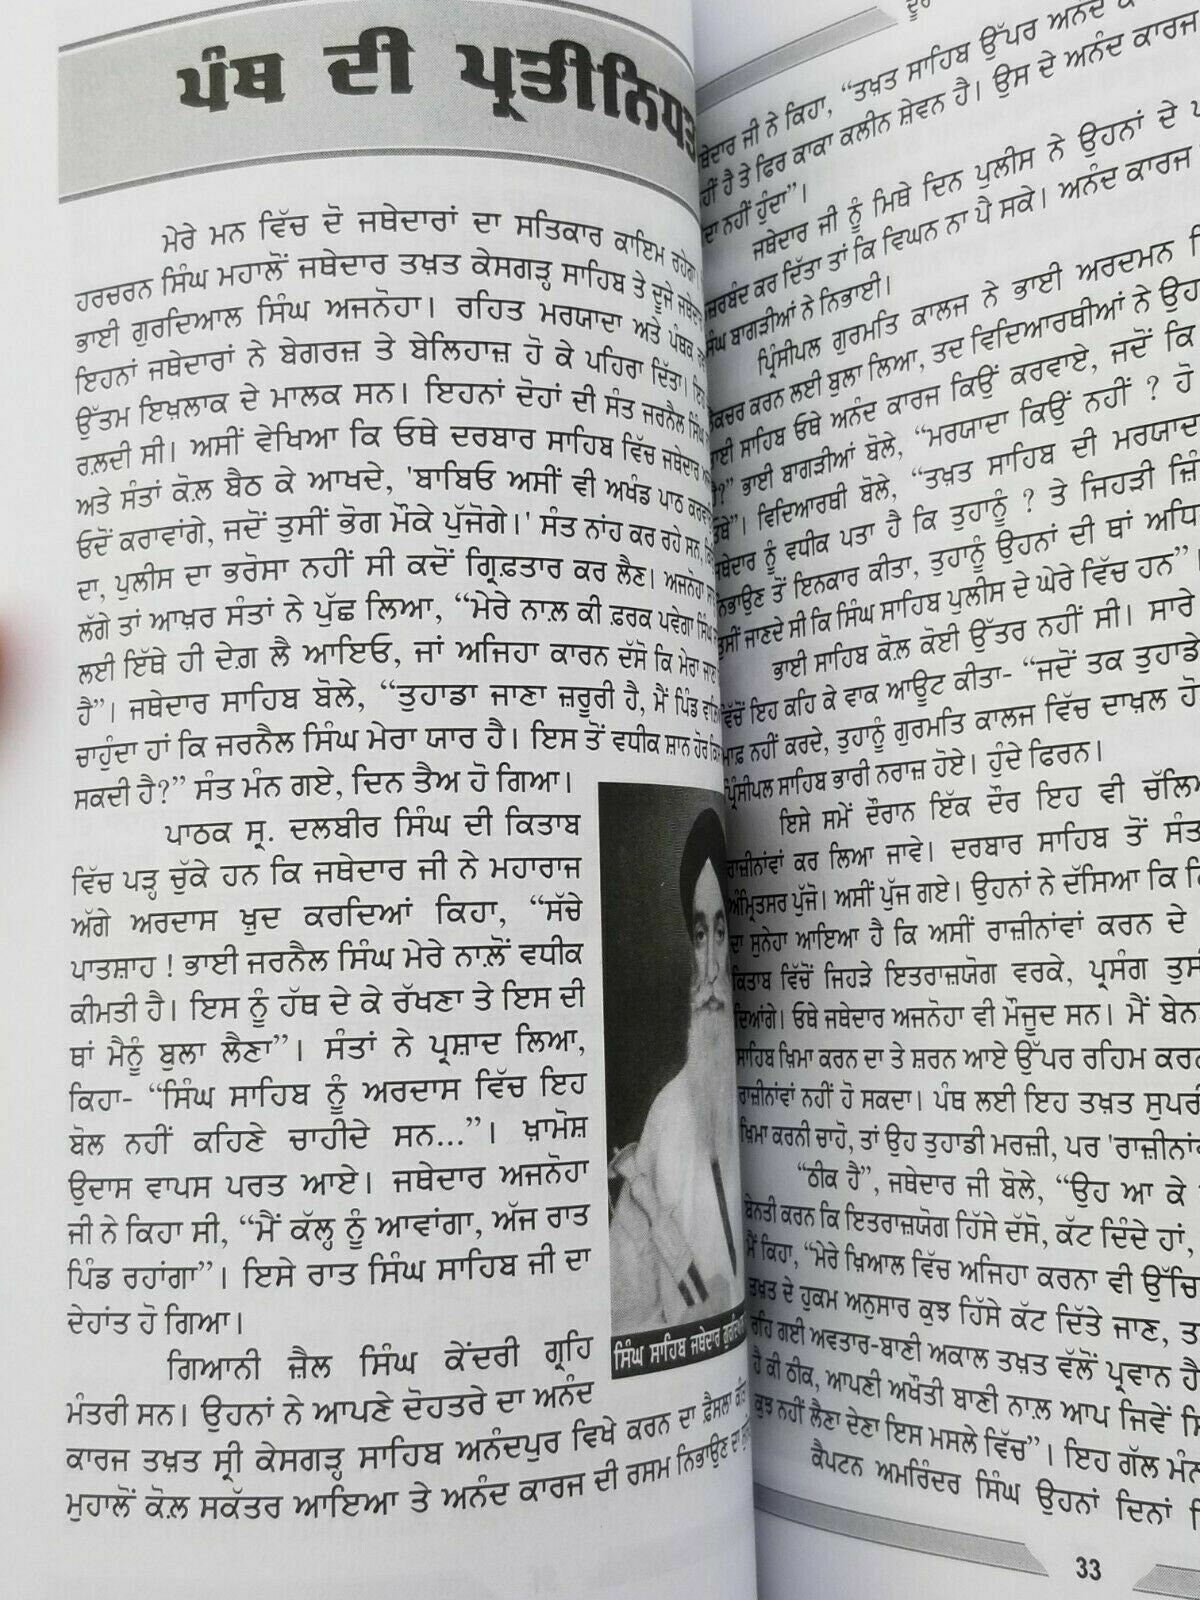 ਪੰਥ ਦੀ ਪ੍ਰਤੀਨਿਧਤ
ਮੇਰੇ ਮਨ ਵਿੱਚ ਦੋ ਜਥੇਦਾਰਾਂ ਦਾ ਸਤਿਕਾਰ ਕਾਇਮ ਰਹੇਗਾ।
ਹਰਚਰਨ ਸਿੰਘ ਮਹਾਲੋਂ ਜਥੇਦਾਰ ਤਖ਼ਤ ਕੇਸਗੜ੍ਹ ਸਾਹਿਬ ਤੇ ਦੂਜੇ ਜਥੇਦਾਰ
ਭਾਈ ਗੁਰਦਿਆਲ ਸਿੰਘ ਅਜਨੋਹਾ। ਰਹਿਤ ਮਰਯਾਦਾ ਅਤੇ ਪੰਥਕ
ਇਹਨਾਂ ਜਥੇਦਾਰਾਂ ਨੇ ਬੇਗਰਜ਼ ਤੇ ਬੇਲਿਹਾਜ਼ ਹੋ ਕੇ ਪਹਿਰਾ ਦਿੱਤਾ।
ਉੱਤਮ ਇਖ਼ਲਾਕ ਦੇ ਮਾਲਕ ਸਨ। ਇਹਨਾਂ ਦੋਹਾਂ ਦੀ ਸੰਤ ਜਰਨੈਲ ਸਿੰਘ
ਰਲ਼ਦੀ ਸੀ। ਅਸੀਂ ਵੇਖਿਆ ਕਿ ਓਥੇ ਦਰਬਾਰ ਸਾਹਿਬ ਵਿੱਚ ਜਥੇਦਾਰ
ਅਤੇ ਸੰਤਾਂ ਕੋਲ਼ ਬੈਠ ਕੇ ਆਖਦੇ, 'ਬਾਬਿਓ ਅਸੀਂ ਵੀ ਅਖੰਡ ਪਾਠ
ਓਦੋਂ ਕਰਾਵਾਂਗੇ, ਜਦੋਂ ਤੁਸੀਂ ਭੋਗ ਮੌਕੇ ਪੁੱਜੋਗੇ।' ਸੰਤ ਨਾਂਹ ਕਰ ਰਹੇ ਸਨ,
ਦਾ, ਪੁਲੀਸ ਦਾ ਭਰੋਸਾ ਨਹੀਂ ਸੀ ਕਦੋਂ ਗ੍ਰਿਫ਼ਤਾਰ ਕਰ ਲੈਣ। ਅਜਨੋਹਾ
ਲੱਗੇ ਤਾਂ ਆਖ਼ਰ ਸੰਤਾਂ ਨੇ ਪੁੱਛ ਲਿਆ, “ਮੇਰੇ ਨਾਲ਼ ਕੀ ਫ਼ਰਕ ਪਵੇਗਾ ਸਿੰਘ
ਲਈ ਇੱਥੇ ਹੀ ਦੇਗ਼ ਲੈ ਆਇਓ, ਜਾਂ ਅਜਿਹਾ ਕਾਰਨ ਦੱਸੋ ਕਿ ਮੇਰਾ ਜਾਣਾ
ਹੈ”। ਜਥੇਦਾਰ ਸਾਹਿਬ ਬੋਲੇ, “ਤੁਹਾਡਾ ਜਾਣਾ ਜ਼ਰੂਰੀ ਹੈ, ਮੈਂ ਪਿੰਡ
ਚਾਹੁੰਦਾ ਹਾਂ ਕਿ ਜਰਨੈਲ ਸਿੰਘ ਮੇਰਾ ਯਾਰ ਹੈ। ਇਸ ਤੋਂ ਵਧੀਕ ਸ਼ਾਨ ਹੋਰ
ਸਕਦੀ ਹੈ?” ਸੰਤ ਮੰਨ ਗਏ, ਦਿਨ ਤੈਅ ਹੋ ਗਿਆ।
ਪਾਠਕ ਸ੍ਰ. ਦਲਬੀਰ ਸਿੰਘ ਦੀ ਕਿਤਾਬ
ਵਿੱਚ ਪੜ੍ਹ ਚੁੱਕੇ ਹਨ ਕਿ ਜਥੇਦਾਰ ਜੀ ਨੇ ਮਹਾਰਾਜ
ਅੱਗੇ ਅਰਦਾਸ ਖ਼ੁਦ ਕਰਦਿਆਂ ਕਿਹਾ, “ਸੱਚੇ
ਪਾਤਸ਼ਾਹ ! ਭਾਈ ਜਰਨੈਲ ਸਿੰਘ ਮੇਰੇ ਨਾਲ਼ੋਂ ਵਧੀਕ
ਕੀਮਤੀ ਹੈ। ਇਸ ਨੂੰ ਹੱਥ ਦੇ ਕੇ ਰੱਖਣਾ ਤੇ ਇਸ ਦੀ
ਥਾਂ ਮੈਨੂੰ ਬੁਲਾ ਲੈਣਾ”। ਸੰਤਾਂ ਨੇ ਪ੍ਰਸ਼ਾਦ ਲਿਆ,
ਕਿਹਾ- “ਸਿੰਘ ਸਾਹਿਬ ਨੂੰ ਅਰਦਾਸ ਵਿੱਚ ਇਹ
ਬੋਲ ਨਹੀਂ ਕਹਿਣੇ ਚਾਹੀਦੇ ਸਨ...”। ਖ਼ਾਮੋਸ਼
ਉਦਾਸ ਵਾਪਸ ਪਰਤ ਆਏ। ਜਥੇਦਾਰ ਅਜਨੋਹਾ
ਜੀ ਨੇ ਕਿਹਾ ਸੀ, “ਮੈਂ ਕੱਲ੍ਹ ਨੂੰ ਆਵਾਂਗਾ, ਅੱਜ ਰਾਤ
ਪਿੰਡ ਰਹਾਂਗਾ”। ਇਸੇ ਰਾਤ ਸਿੰਘ ਸਾਹਿਬ ਜੀ ਦਾ
ਦੇਹਾਂਤ ਹੋ ਗਿਆ।
ਸਿੰਘ ਸਾਹਿਬ ਜਥੇਦਾਰ
ਗਿਆਨੀ ਜ਼ੈਲ ਸਿੰਘ ਕੇਂਦਰੀ ਗ੍ਰਹਿ
ਮੰਤਰੀ ਸਨ। ਉਹਨਾਂ ਨੇ ਆਪਣੇ ਦੋਹਤਰੇ ਦਾ ਅਨੰਦ
ਕਾਰਜ ਤਖ਼ਤ ਸ੍ਰੀ ਕੇਸਗੜ੍ਹ ਸਾਹਿਬ ਅਨੰਦਪੁਰ ਵਿਖੇ ਕਰਨ ਦਾ ਫ਼ੈਸਲਾ
ਮੁਹਾਲੋਂ ਕੋਲ਼ ਸਕੱਤਰ ਆਇਆ ਤੇ ਅਨੰਦ ਕਾਰਜ ਦੀ ਰਸਮ ਨਿਭਾਉਣ ਦਾ
ਜੀ ਨੇ ਕਿਹਾ, “ਤਖ਼ਤ ਸਾਹਿਬ ਉੱਪਰ ਅਨੰਦ
ਹੈ ਤੇ ਫਿਰ ਕਾਕਾ ਕਲੀਨ ਸ਼ੇਵਨ ਹੈ। ਉਸ ਦੇ ਅਨੰਦ ਕਾਰਜ
ਨਹੀਂ ਹੁੰਦਾ”।
ਜਥੇਦਾਰ ਜੀ ਨੂੰ ਮਿਥੇ ਦਿਨ ਪੁਲੀਸ ਨੇ ਉਹਨਾਂ ਦੇ
ਕਰ ਦਿੱਤਾ ਤਾਂ ਕਿ ਵਿਘਨ ਨਾ ਪੈ ਸਕੇ। ਅਨੰਦ ਕਾਰਜ
ਬਾਗੜੀਆਂ ਨੇ ਨਿਭਾਈ।
ਪ੍ਰਿੰਸੀਪਲ ਗੁਰਮਤਿ ਕਾਲਜ ਨੇ ਭਾਈ ਅਰਦਮਨ
ਕਰਨ ਲਈ ਬੁਲਾ ਲਿਆ, ਤਦ ਵਿਦਿਆਰਥੀਆਂ ਨੇ
ਸਾਹਿਬ ਓਥੇ ਅਨੰਦ ਕਾਰਜ ਕਿਉਂ ਕਰਵਾਏ, ਜਦੋਂ ਕਿ
ਭਾਈ ਬਾਗੜੀਆਂ ਬੋਲੇ, “ਮਰਯਾਦਾ ਕਿਉਂ ਨਹੀਂ ? ਹੋ
ਵਿਦਿਆਰਥੀ ਬੋਲੇ, “ਤਖ਼ਤ ਸਾਹਿਬ ਦੀ ਮਰਯਾਦਾ
ਨੂੰ ਵਧੀਕ ਪਤਾ ਹੈ ਕਿ ਤੁਹਾਨੂੰ ? ਤੇ ਜਿਹੜੀ
ਨਿਭਾਉਣ ਤੋਂ ਇਨਕਾਰ ਕੀਤਾ, ਤੁਹਾਨੂੰ ਉਹਨਾਂ ਦੀ ਥਾਂ
ਤੁਸੀਂ ਜਾਣਦੇ ਸੀ ਕਿ ਸਿੰਘ ਸਾਹਿਬ ਪੁਲੀਸ ਦੇ ਘੇਰੇ ਵਿੱਚ ਹਨ”।
ਭਾਈ ਸਾਹਿਬ ਕੋਲ਼ ਕੋਈ ਉੱਤਰ ਨਹੀਂ ਸੀ। ਸਾਰੇ
ਵਿੱਚੋਂ ਇਹ ਕਹਿ ਕੇ ਵਾਕ ਆਊਟ ਕੀਤਾ- “ਜਦੋਂ ਤਕ ਤੁਹਾਡੇ
ਮਾਫ਼ ਨਹੀਂ ਕਰਦੇ, ਤੁਹਾਨੂੰ ਗੁਰਮਤਿ ਕਾਲਜ ਵਿੱਚ ਦਾਖ਼ਲ ਹੋ
ਪ੍ਰਿੰਸੀਪਲ ਸਾਹਿਬ ਭਾਰੀ ਨਰਾਜ਼ ਹੋਏ। ਹੁੰਦੇ ਫਿਰਨ।
ਇਸੇ ਸਮੇਂ ਦੌਰਾਨ ਇੱਕ ਦੌਰ ਇਹ ਵੀ
ਰਾਜ਼ੀਨਾਂਵਾਂ ਕਰ ਲਿਆ ਜਾਵੇ। ਦਰਬਾਰ ਸਾਹਿਬ ਤੋਂ ਸੰਤ
ਅੰਮ੍ਰਿਤਸਰ ਪੁੱਜੋ। ਅਸੀਂ ਪੁੱਜ ਗਏ। ਉਹਨਾਂ ਨੇ ਦੱਸਿਆ ਕਿ
ਦਾ ਸੁਨੇਹਾ ਆਇਆ ਹੈ ਕਿ ਅਸੀਂ ਰਾਜ਼ੀਨਾਂਵਾਂ ਕਰਨ ਦੇ
ਕਿਤਾਬ ਵਿੱਚੋਂ ਜਿਹੜੇ ਇਤਰਾਜ਼ਯੋਗ ਵਰਕੇ, ਪ੍ਰਸੰਗ
ਦਿਆਂਗੇ। ਓਥੇ ਜਥੇਦਾਰ ਅਜਨੋਹਾ ਵੀ ਮੌਜੂਦ ਸਨ। ਮੈਂ
ਸਾਹਿਬ ਖ਼ਿਮਾ ਕਰਨ ਦਾ ਤੇ ਸ਼ਰਨ ਆਏ ਉੱਪਰ ਰਹਿਮ ਕਰਨ
ਰਾਜ਼ੀਨਾਂਵਾਂ ਨਹੀਂ ਹੋ ਸਕਦਾ। ਪੰਥ ਲਈ ਇਹ ਤਖ਼ਤ
ਖ਼ਿਮਾ ਕਰਨੀ ਚਾਹੋ, ਤਾਂ ਉਹ ਤੁਹਾਡੀ ਮਰਜ਼ੀ, ਪਰ
“ਠੀਕ ਹੈ”, ਜਥੇਦਾਰ ਜੀ ਬੋਲੇ, “ਉਹ ਆ ਕੇ
ਬੇਨਤੀ ਕਰਨ ਕਿ ਇਤਰਾਜ਼ਯੋਗ ਹਿੱਸੇ ਦੱਸੋ, ਕੱਟ ਦਿੰਦੇ ਹਾਂ,
ਮੈਂ ਕਿਹਾ, “ਮੇਰੇ ਖ਼ਿਆਲ ਵਿੱਚ ਅਜਿਹਾ ਕਰਨਾ ਵੀ
ਤਖ਼ਤ ਦੇ ਹੁਕਮ ਅਨੁਸਾਰ ਕੁਝ ਹਿੱਸੇ ਕੱਟ ਦਿੱਤੇ ਜਾਣ,
ਰਹਿ ਗਈ ਅਵਤਾਰ-ਬਾਣੀ ਅਕਾਲ ਤਖ਼ਤ ਵੱਲੋਂ ਪ੍ਰਵਾਨ ਹੈ
ਹੈ ਕੀ ਠੀਕ, ਆਪਣੀ ਅਖੌਤੀ ਬਾਣੀ ਨਾਲ਼ ਆਪ ਜਿਵੇਂ
ਕੁਝ ਨਹੀਂ ਲੈਣਾ ਦੇਣਾ ਇਸ ਮਸਲੇ ਵਿੱਚ”। ਇਹ ਗੱਲ
ਕੈਪਟਨ ਅਮਰਿੰਦਰ ਸਿੰਘ ਉਹਨਾਂ ਦਿਨਾਂ
33